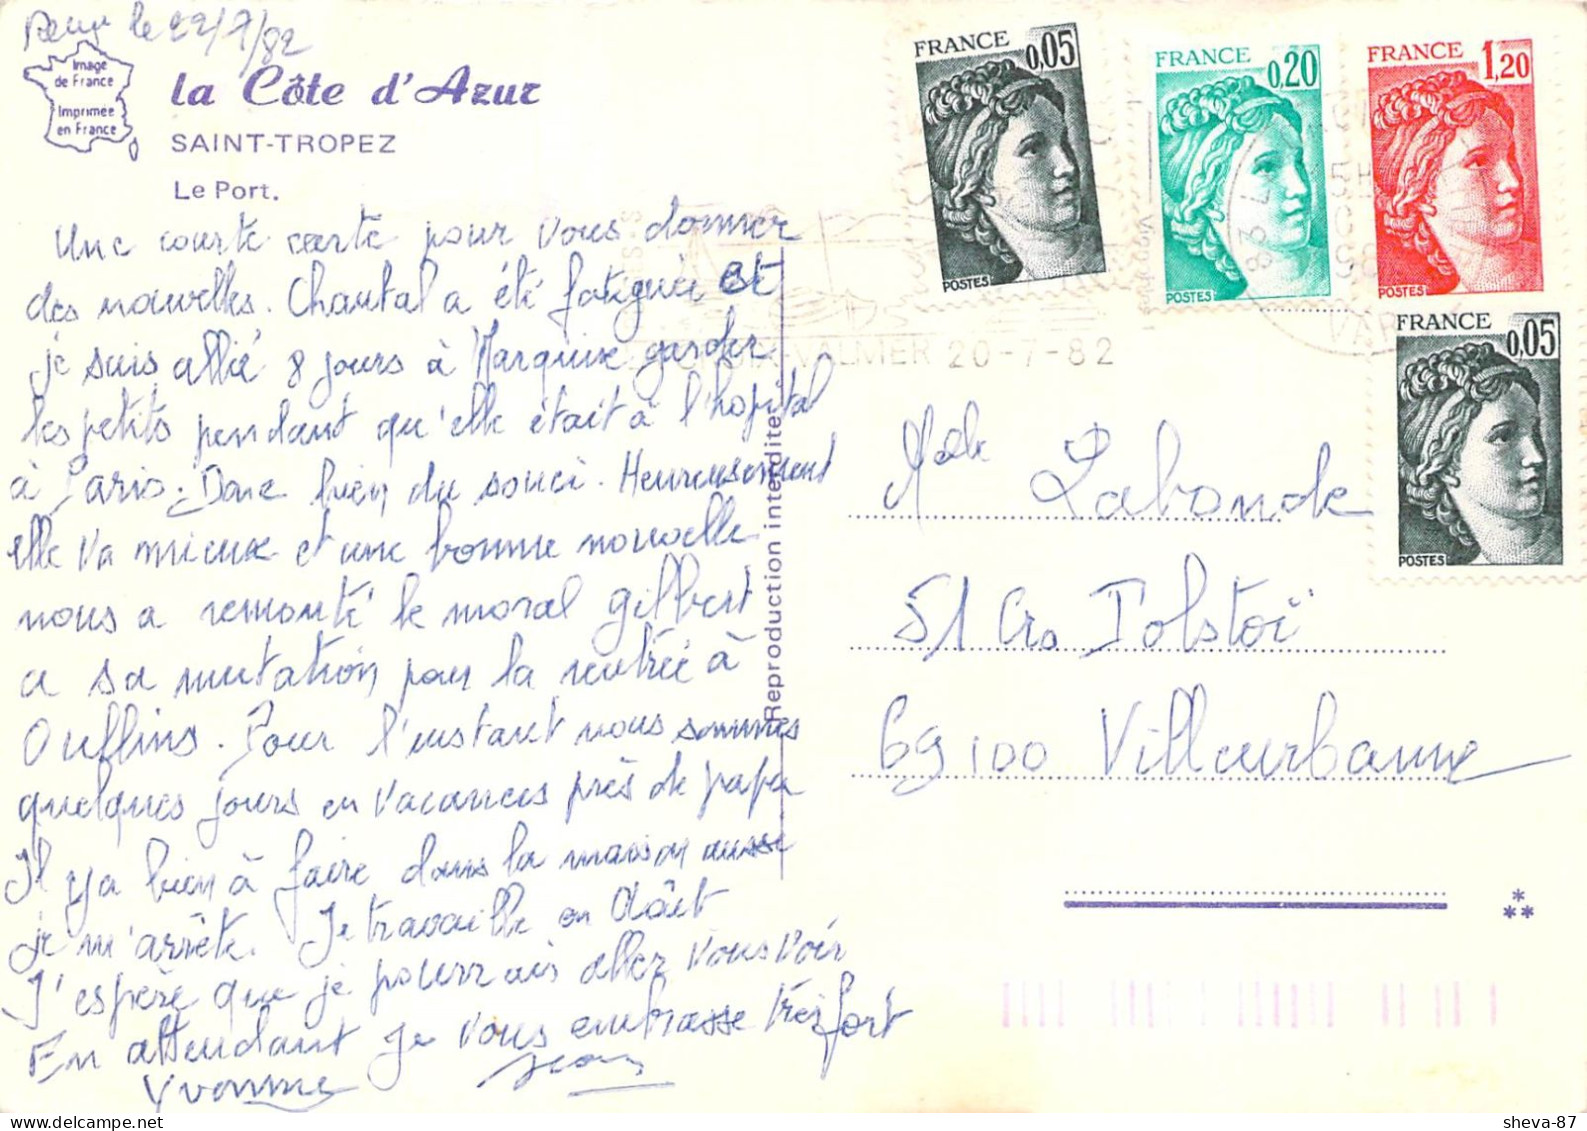 le 22/7/82
Image
de France
Imprimée
en France
la Côte d'Azur
SAINT-TROPEZ
Le Port.
Une courte carte pour vous donner
des nouvelles. Chantal a été fatiguée et
je suis allée 8 jours à Marquise garder
les petits pendant qu'elle était à l'hopital
à Paris. Donc bien du souci. Heureusement
elle va mieux et une bonne nouvelle
nous a remonté le moral Gilbert
a sa mutation pour la rentrée à
Oullins. Pour l'instant nous sommes
quelques jours en vacances près de papa
Il y a bien à faire dans la maison aussi
je m'arrête. Je travaille en Août
J'espère que je pourrais aller vous voir
En attendant je vous embrasse très fort
Yvonne Jean
Reproduction interdite
FRANCE 0,05
POSTES
FRANCE 0,20
POSTES
FRANCE 1,20
POSTES
FRANCE 0,05
POSTES
CROIX-VALMER 20-7-82
83
VAR
Melle Labonde
51 Crs Tolstoï
69100 Villeurbanne
sheva-87